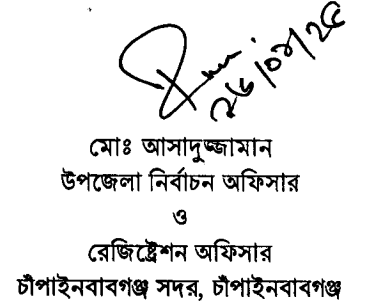 ২৬/০২/২৫
মোঃ আসাদুজ্জামান
উপজেলা নির্বাচন অফিসার
ও
রেজিষ্ট্রেশন অফিসার
চাঁপাইনবাবগঞ্জ সদর, চাঁপাইনবাবগঞ্জ